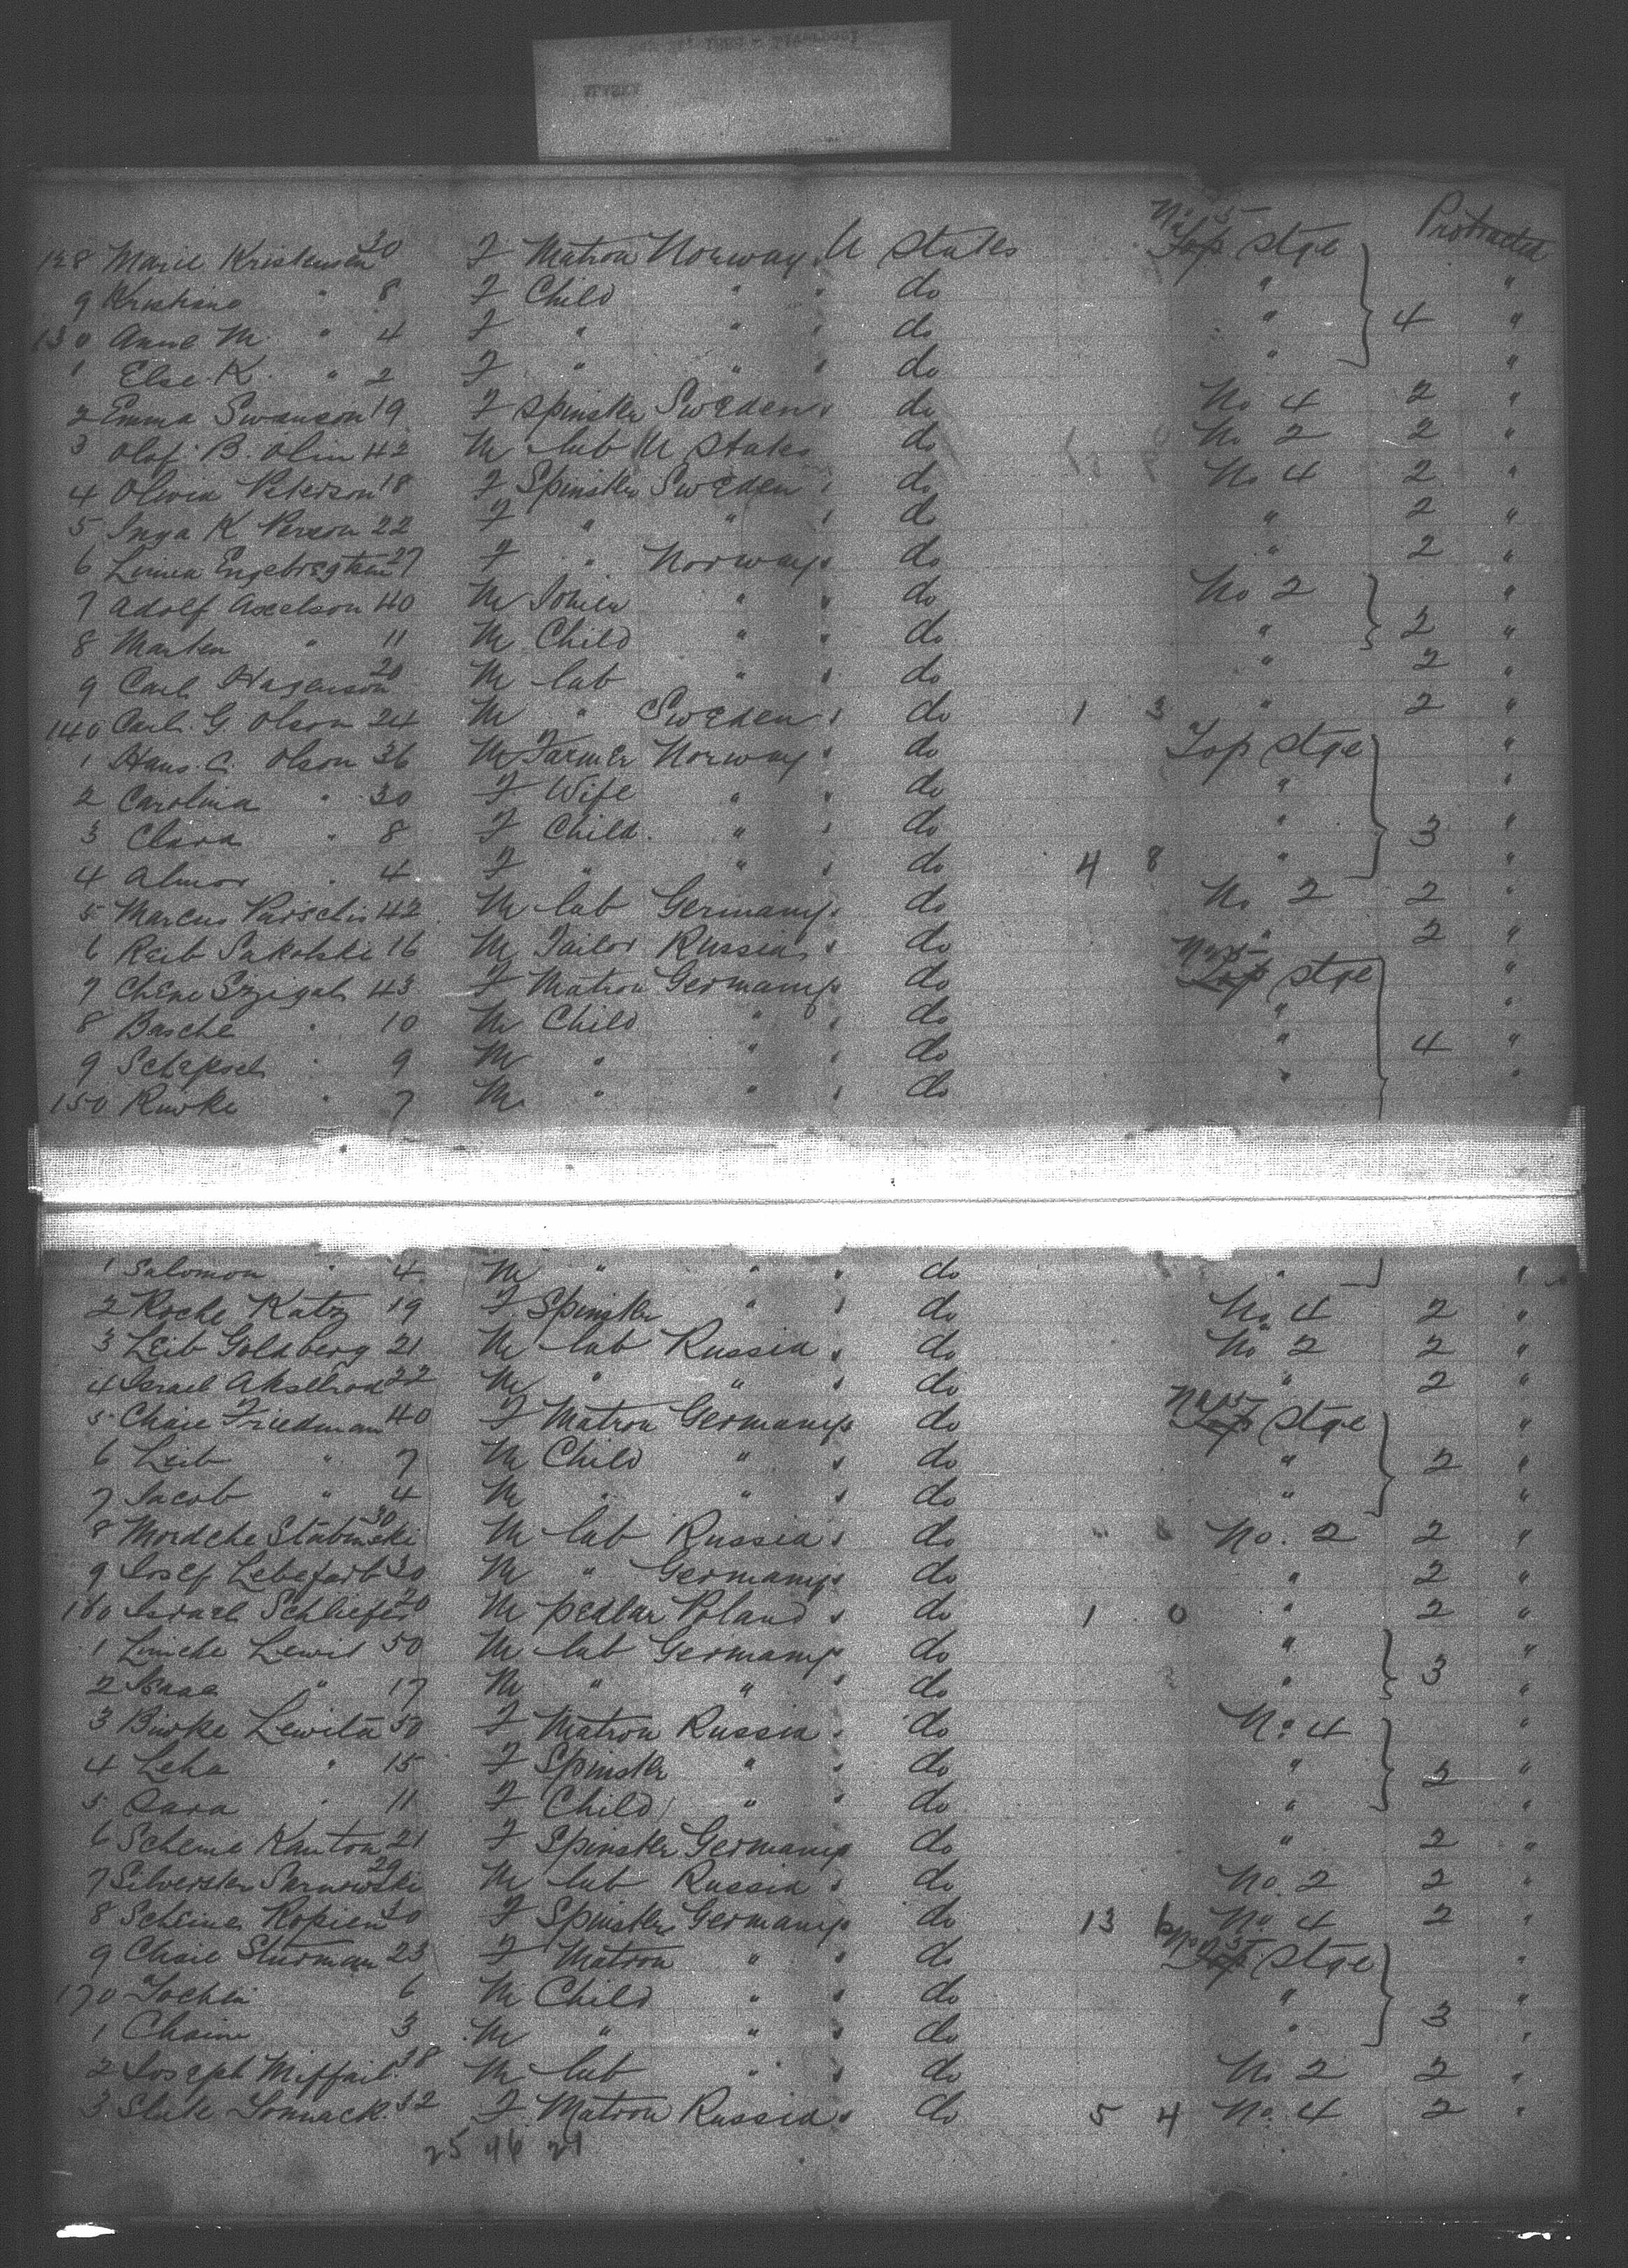 No 5 Protracted
128 Marie Kristensen 30 F Matron Norway U States Top Stge
9 Kristine " 8 F Child " " do "
130 Anne M. " 4 F " " " do " 4 "
1 Else K. " 2 F " " " do " "
2 Emma Swanson 19 F Spinster Sweden " do No 4 2 "
3 Olof B. Olin 42 M lab U States do No 2 2 "
4 Olivia Peterson 18 F Spinster Sweden " do No 4 2 "
5 Inga K Person 22 F " " " do " 2 "
6 Engebregtsen 27 F " Norway " do " 2 "
7 Adolf Axelson 40 M Norway " do No 2 "
8 Marten " 11 M Child " " do " 2 "
9 Carl 20 M lab " " do " 2 "
140 Carl G. Olson 24 M " Sweden " do 1 3 " 2 "
1 Hans C. Olson 36 M Farmer Norway " do Top Stge "
2 Carolina " 30 F Wife " " do " "
3 Clara " 8 F Child " " do " 3 "
4 Almor " 4 F " " " do 4 8 " "
5 Marcus 42 M lab Germany " do No 2 2 "
6 Sakolski 16 M Tailor Russia " do " 2 "
No 5
7 Chene Szigal 43 F Matron Germany " do Top Stge "
8 Basche " 10 M Child " " do " "
9 Schepsel " 9 M " " " do " 4 "
150 Riwke " 7 M " " " do " "
1 Salomon " 4 M " " " do " "
2 Roche Katz 19 F Spinster " " do No 4 2 "
3 Leib Goldberg 21 M lab Russia " do No 2 2 "
4 Israel Akselrod 22 M " " " do " 2 "
No 5
5 Chaie Friedman 40 F Matron Germany " do Top Stge "
6 Leib " 7 M Child " " do " 2 "
7 Jacob " 4 M " " " do " "
8 Mordche Stabinski 30 M lab Russia " do No. 2 2 "
9 Josef Lebefarb 30 M " Germany " do " 2 "
160 Israel Schliefer 20 M pedlar Poland " do 1 0 " 2 "
1 Lewis 50 M lab Germany " do " "
2 Isaac " 17 M " " " do " 3 "
3 Biwke Lewita 50 F Matron Russia " do No 4 "
4 Leha " 15 F Spinster " " do " 2 "
5 Sara " 11 F Child " " do " "
6 Scheme Kanton 21 F Spinster Germany do " 2 "
7 Silvester Sarnowski 29 M lab Russia " do No. 2 2 "
8 Scheine Kopien 30 F Spinster Germany do 13 6 No. 4 2 "
No 5
9 Chaie Sturman 23 F Matron " " do Top Stge "
170 6 M Child " " do " "
1 Chaim 3 M " " " do " 3 "
2 Joseph 38 M lab " " do No 2 2 "
3 32 F Matron Russia " do 5 4 No. 4 2 "
25 46 21